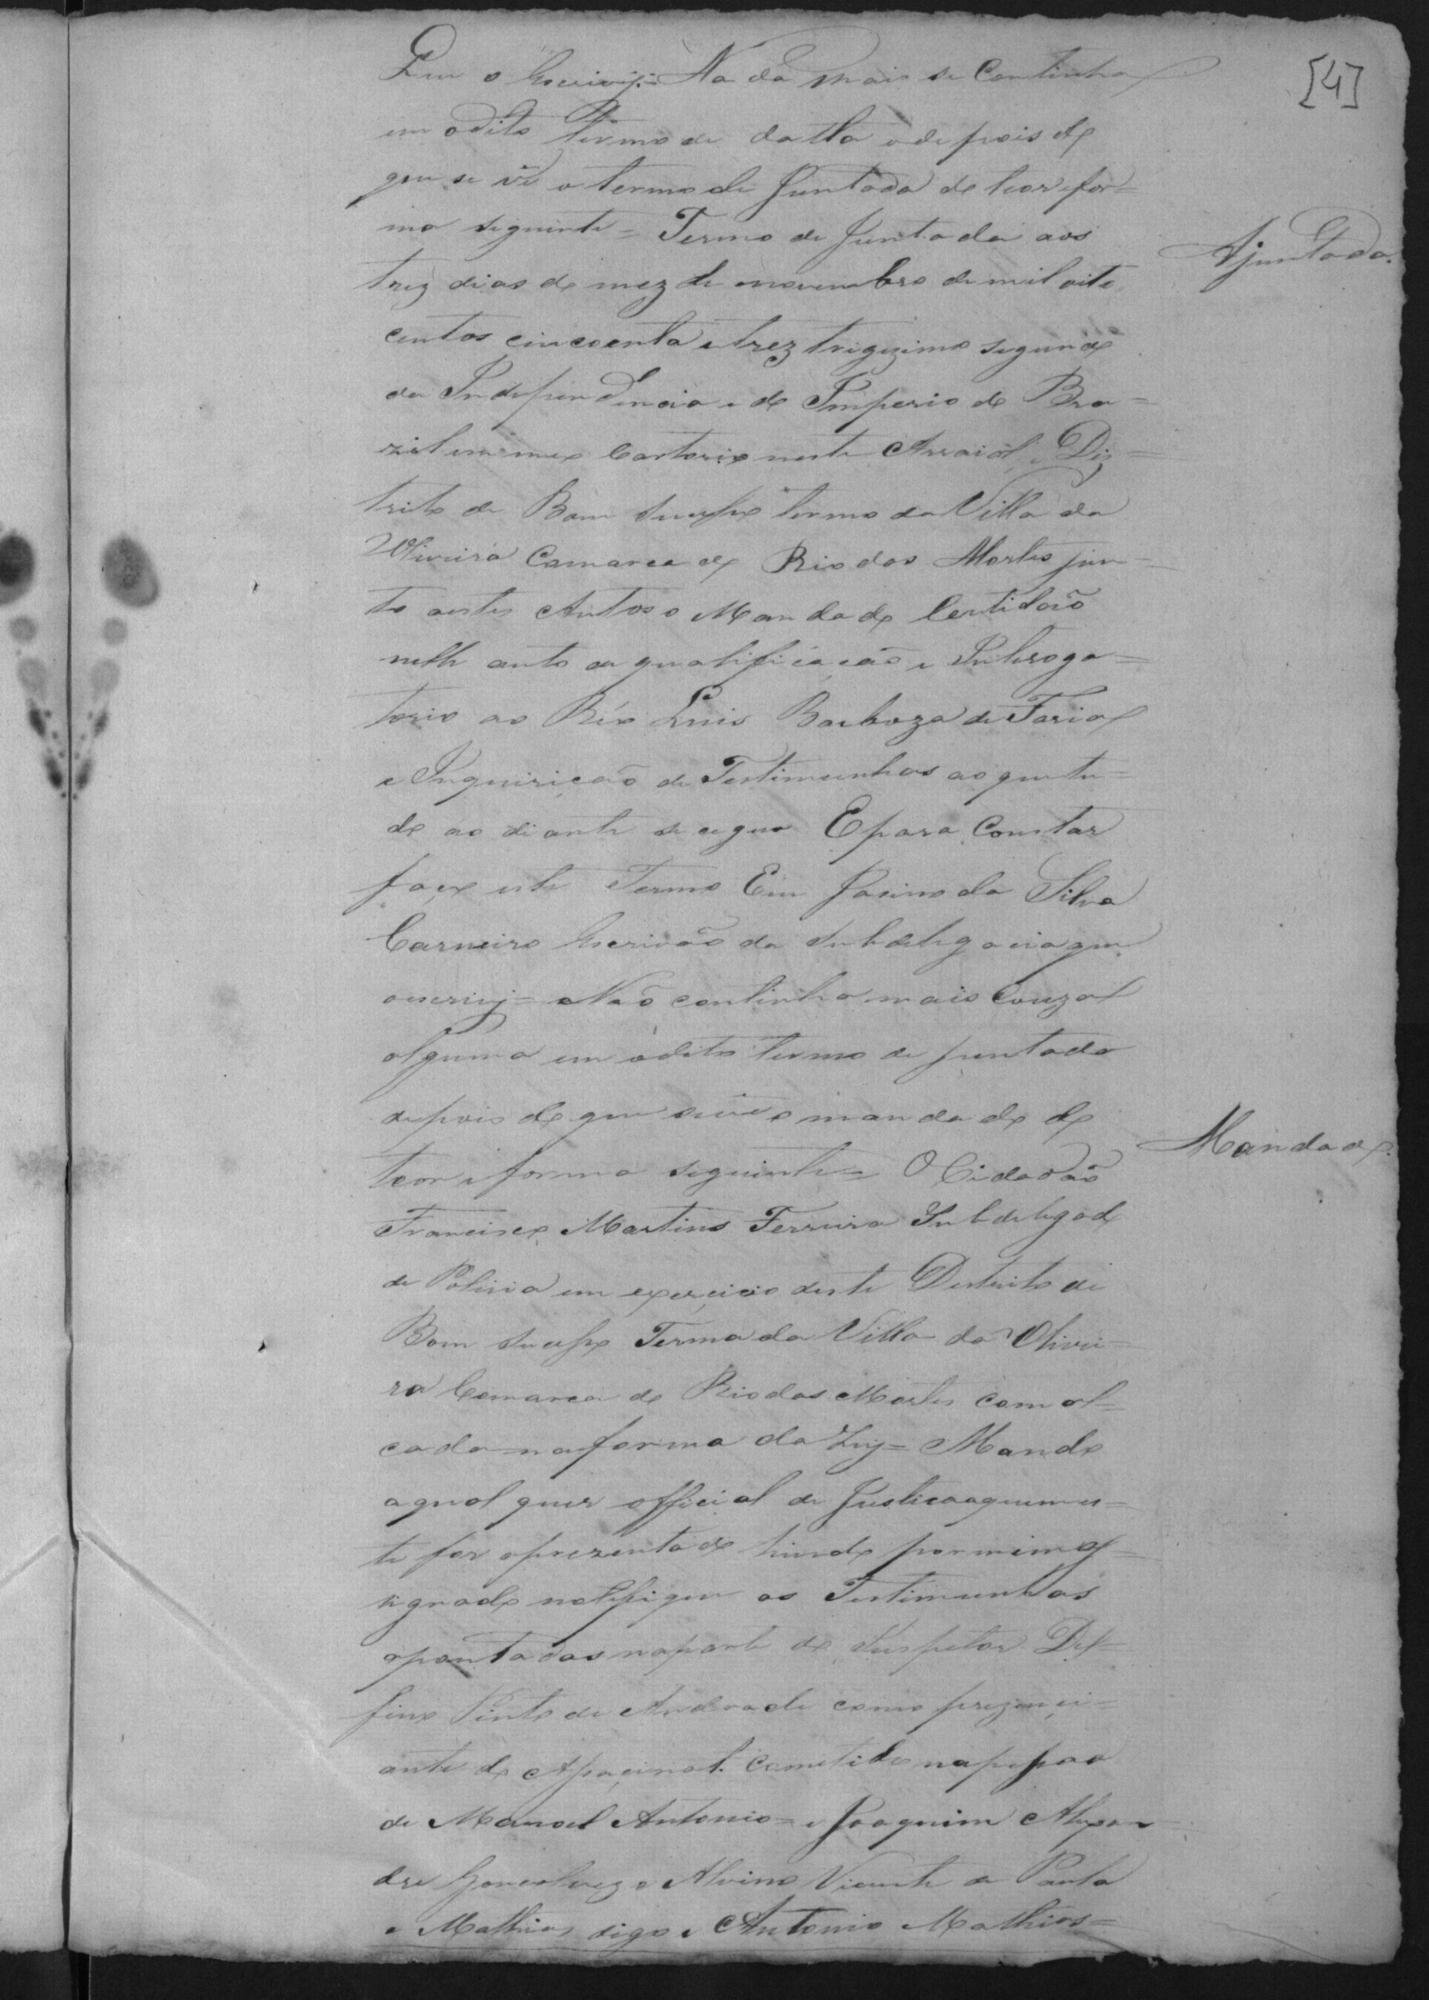 [4]
que o escrivy= Nada mais se Continha
em odito termo de datta e depois do
que se vê o termo de Juntada do teor e for=
ma seguinte= Termo de Juntada aos
Ajuntada.
trez dias do mez de novembro de mil oito
centos cincoenta e trez trigezimo segundo
da Independencia e do Imperio do Bra=
zil em meu Cartorio neste Arraial, e Diz=
trito de Bom Sucesso termo da Villa da
Oliveira Camarca do Rio das Mortes jun=
to a estes Autos o Mandado Certidaõ
nelle auto de qualificação e Interoga=
torio ao Réo Luis Barboza de Faria
e Inquirição de Testimunhas ao que tu=
do ao diante se segue E para Constar
faço este Termo Eu Jacinto da Silva
Carneiro Escrivaõ da Subdelegacia que
oescrivy= Naõ continha mais Couza
alguma em odito termo de juntada
depois do que se vê o mandado do
Mandado.
teor e forma seguinte= O Cidadaõ
Francisco Martins Ferreira Subdelegado
de Policia em exercicio deste Destrito de
Bom Sucesso Termo da Villa da Olivei=
ra Comarca do Rio das Mortes com al=
cada na forma da Ley= Mando
a qual quer official de Justica a quem es=
te for aprezentado hindo por mim as=
signado notefique as Testimunhas
apontadas na parte do Inspetor Del=
fino Pinto de Andrade como prezenci=
ante do Assacinato Cometido na pessoa
de Manoel Antonio= e Joaquim Alexan
dre Goncalvez e Alvino Vicente de Paula
e Mathias digo e Antonio Mathias=